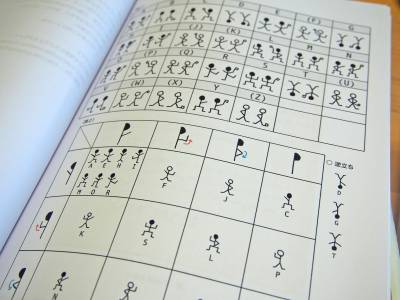 D E (F) G
(J) (K) L M
(P) (Q) R S T (U)
(W) (X) Y (Z)
○ 逆立ち
A E H I
M O R
F
J
C
D
G
T
K
S
L
P
N